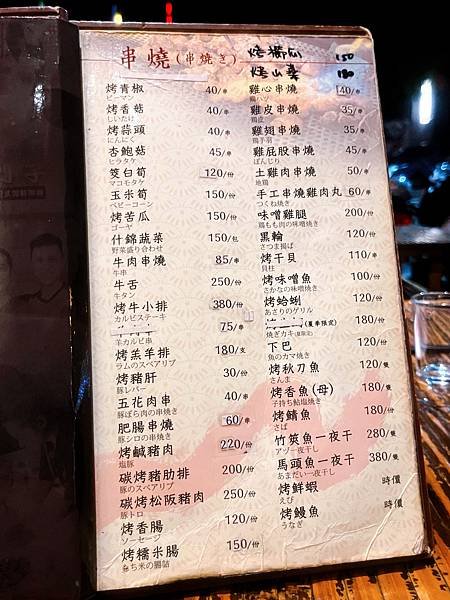 串燒(串燒き)
烤櫛瓜 150
烤山藥 180
烤青椒 40/串
ピーマン
烤香菇 40/串
しいたけ
烤蒜頭 40/串
にんにく
杏鮑菇 45/串
ヒラタケ
筊白筍 120/份
マコモタケ
玉米筍 150/份
ベビーコーン
烤苦瓜 150/份
ゴーヤ
什錦蔬菜 150/包
野菜盛り合わせ
牛肉串燒 85/串
牛串
牛舌 250/份
牛タン
烤牛小排 380/份
カルビステーキ
75/串
羊カルビ串
烤羔羊排 180/支
ラムのスペアリブ
烤豬肝 30/份
豚レバー
五花肉串 40/串
豚ばら肉の串焼き
肥腸串燒 60/串
豚シロの串焼き
烤鹹豬肉 220/份
塩豚
碳烤豬肋排 200/份
豚のスペアリブ
碳烤松阪豬肉 250/份
豚トロ
烤香腸 120/份
ソーセージ
烤糯米腸 150/份
もち米の腸詰
雞心串燒 40/串
鶏ハツ
雞皮串燒 35/串
鶏皮
雞翅串燒 45/串
鶏手羽
雞屁股串燒 35/串
ぼんじり
土雞肉串燒 50/串
地鶏
手工串燒雞肉丸 60/串
つくね焼き
味噌雞腿 200/份
鶏もも肉の味噌焼き
黑輪 120/份
さつま揚げ
烤干貝 110/串
貝柱
烤味噌魚 100/份
さかなの味噌焼き
烤蛤蜊 120/份
あさりのグリル
(夏季限定)
焼ぎカキ(夏限定)
下巴 120/份
魚のカマ焼き
烤秋刀魚 120/隻
さんま
烤香魚(母) 180/隻
子持ち鮎塩焼き
烤鯖魚 180/份
さば
竹筴魚一夜干 280/隻
アヅ一夜干し
馬頭魚一夜干 380/隻
あまだい一夜干し
烤鮮蝦 時價
えび
烤鰻魚 時價
うなぎ